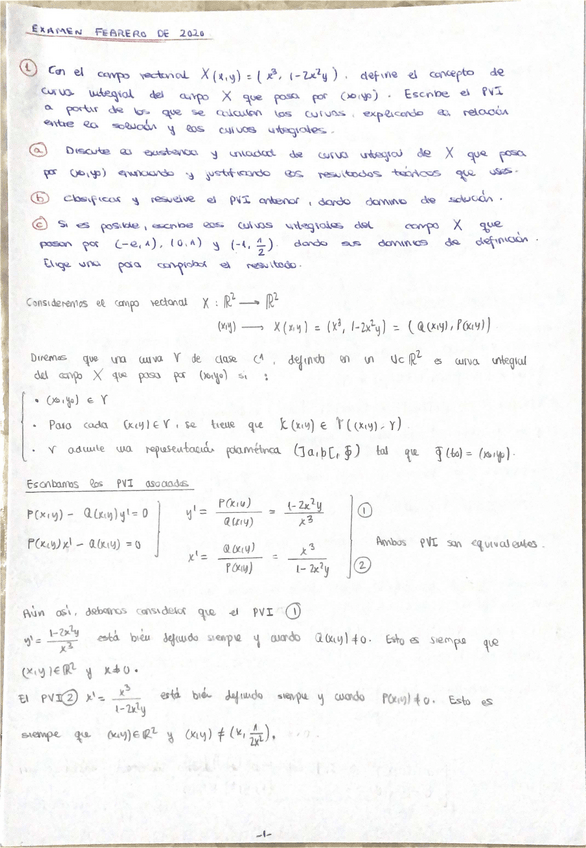 EXAMEN FEBRERO DE 2020
① Con el campo vectorial X(x,y) = (x³, 1-2x²y), define el concepto de
curva integral del campo X que pasa por (x₀,y₀). Escribe el PVI
a partir de los que se calculan las curvas, explicando la relación
entre la solución y las curvas integrales.
ⓐ Discute la existencia y unicidad de curva integral de X que pasa
por (x₀,y₀) enunciando y justificando los resultados teóricos que uses.
ⓑ Clasificar y resuelve el PVI anterior, dando dominio de solución.
ⓒ Si es posible, escribe las curvas integrales del campo X que
pasan por (-2,1), (0,1) y (-1, 1/2) dando sus dominios de definición.
Elige una para comprobar el resultado.
Consideremos el campo vectorial X : ℝ² → ℝ²
(x,y) → X(x,y) = (x³, 1-2x²y) = (Q(x,y), P(x,y))
Diremos que una curva γ de clase C¹, definida en un U⊂ℝ² es curva integral
del campo X que pasa por (x₀,y₀) si :
• (x₀,y₀) ∈ γ
• Para cada (x,y) ∈ γ, se tiene que X(x,y) ∈ T((x,y), γ).
• γ admite una representación paramétrica (]a,b[, Φ) tal que Φ(t₀) = (x₀,y₀).
Escribamos los PVI asociados
P(x,y) - Q(x,y)y' = 0 y' = P(x,y)/Q(x,y) = (1-2x²y)/x³ ①
P(x,y)x' - Q(x,y) = 0 x' = Q(x,y)/P(x,y) = x³/(1-2x²y) ② Ambos PVI son equivalentes.
Aún así, debemos considerar que el PVI ①
y' = (1-2x²y)/x³ está bien definido siempre y cuando Q(x,y) ≠ 0. Esto es siempre que
(x,y) ∈ ℝ² y x ≠ 0.
El PVI ② x' = x³/(1-2x²y) está bien definido siempre y cuando P(x,y) ≠ 0. Esto es
siempre que (x,y) ∈ ℝ² y (x,y) ≠ (x, 1/2x²).
-1-